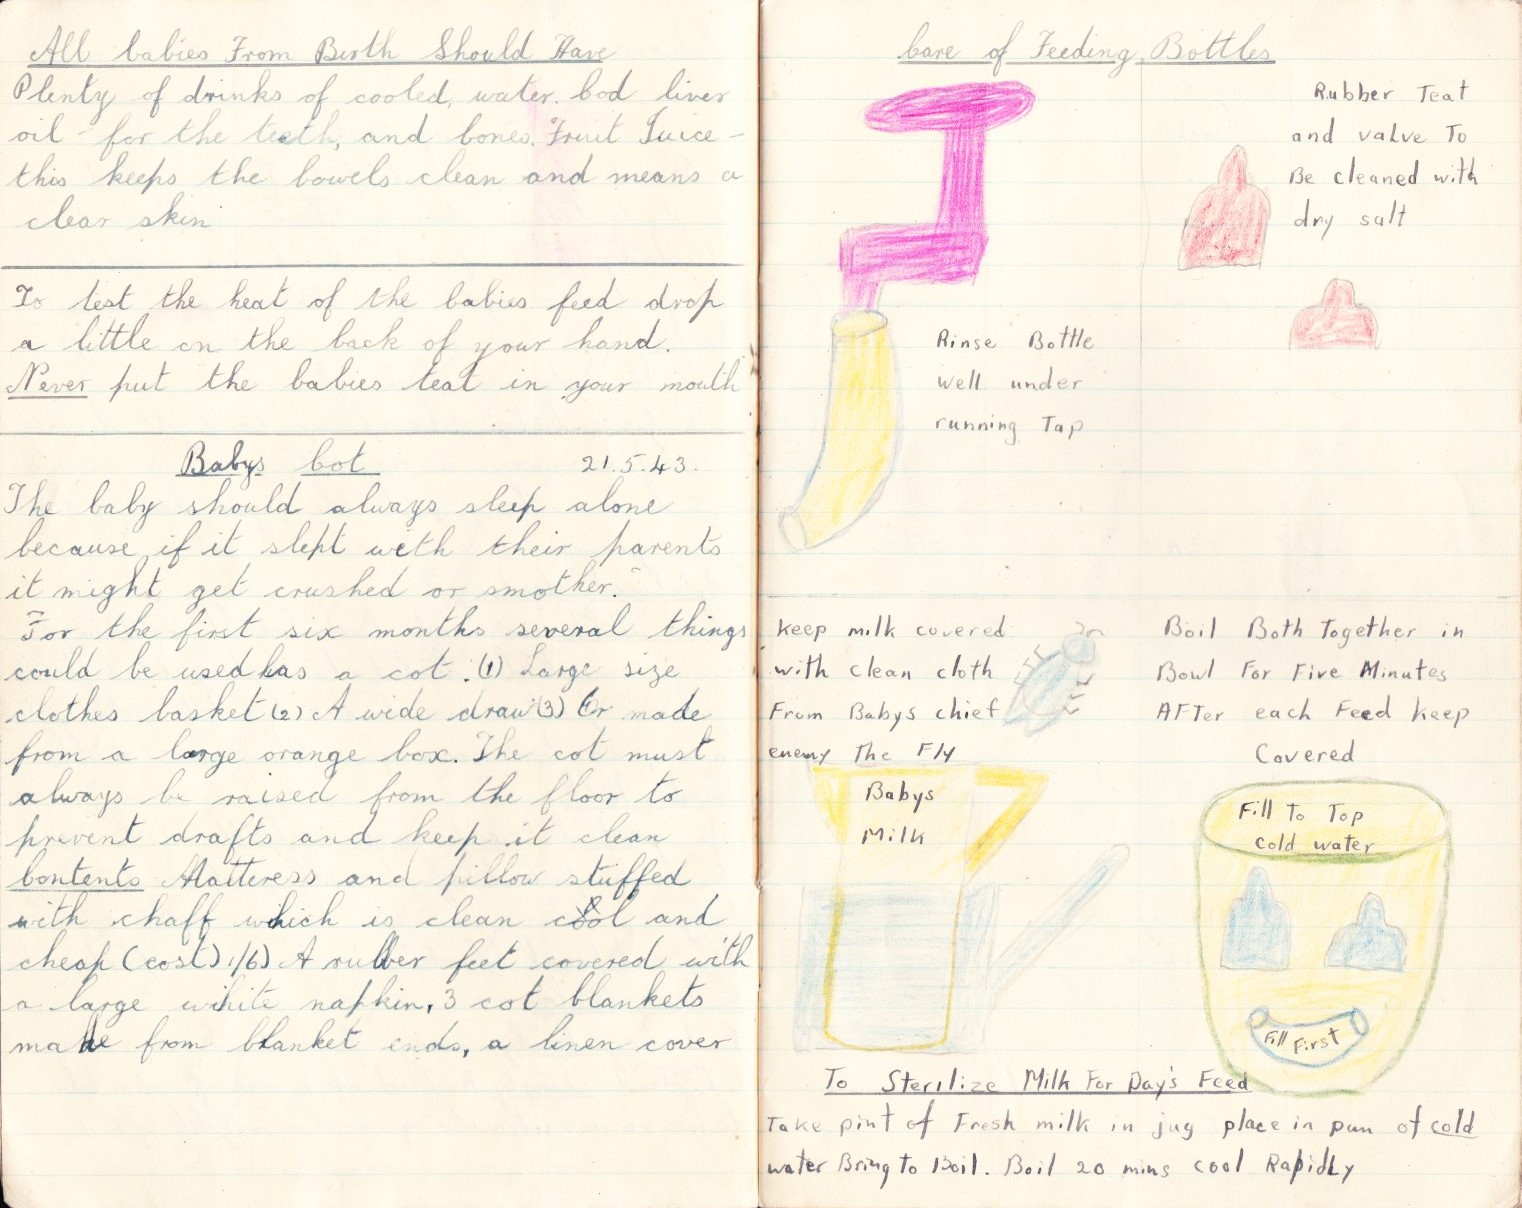 All babies From Birth Should Have
Plenty of drinks of cooled, water. Cod liver
oil - for the teeth, and bones. Fruit Juice -
this keeps the bowels clean and means a
clear skin
To test the heat of the babies feed drop
a little on the back of your hand.
Never put the babies teat in your mouth
Babys Cot 21.5.43.
The baby should always sleep alone
because if it slept with their parents
it might get crushed or smother.
For the first six months several things
could be used as a cot. (1) Large size
clothes basket (2) A wide draw (3) Or made
from a large orange box. The cot must
always be raised from the floor to
prevent drafts and keep it clean
Contents Matteress and pillow stuffed
with chaff which is clean cool and
cheap (cost) 1/6) A rubber feet covered with
a large white napkin, 3 cot blankets
made from blanket ends, a linen cover
Care of Feeding Bottles
Rubber Teat
and valve To
Be cleaned with
dry salt
Rinse Bottle
well under
running Tap
keep milk covered
with clean cloth
From Babys chief
enemy The Fly
Babys
Milk
Boil Both Together in
Bowl For Five Minutes
AFTer each Feed keep
Covered
Fill To Top
cold water
Fill First
To Sterilize Milk For Day's Feed
Take pint of Fresh milk in jug place in pan of cold
water Bring to Boil. Boil 20 mins cool Rapidly